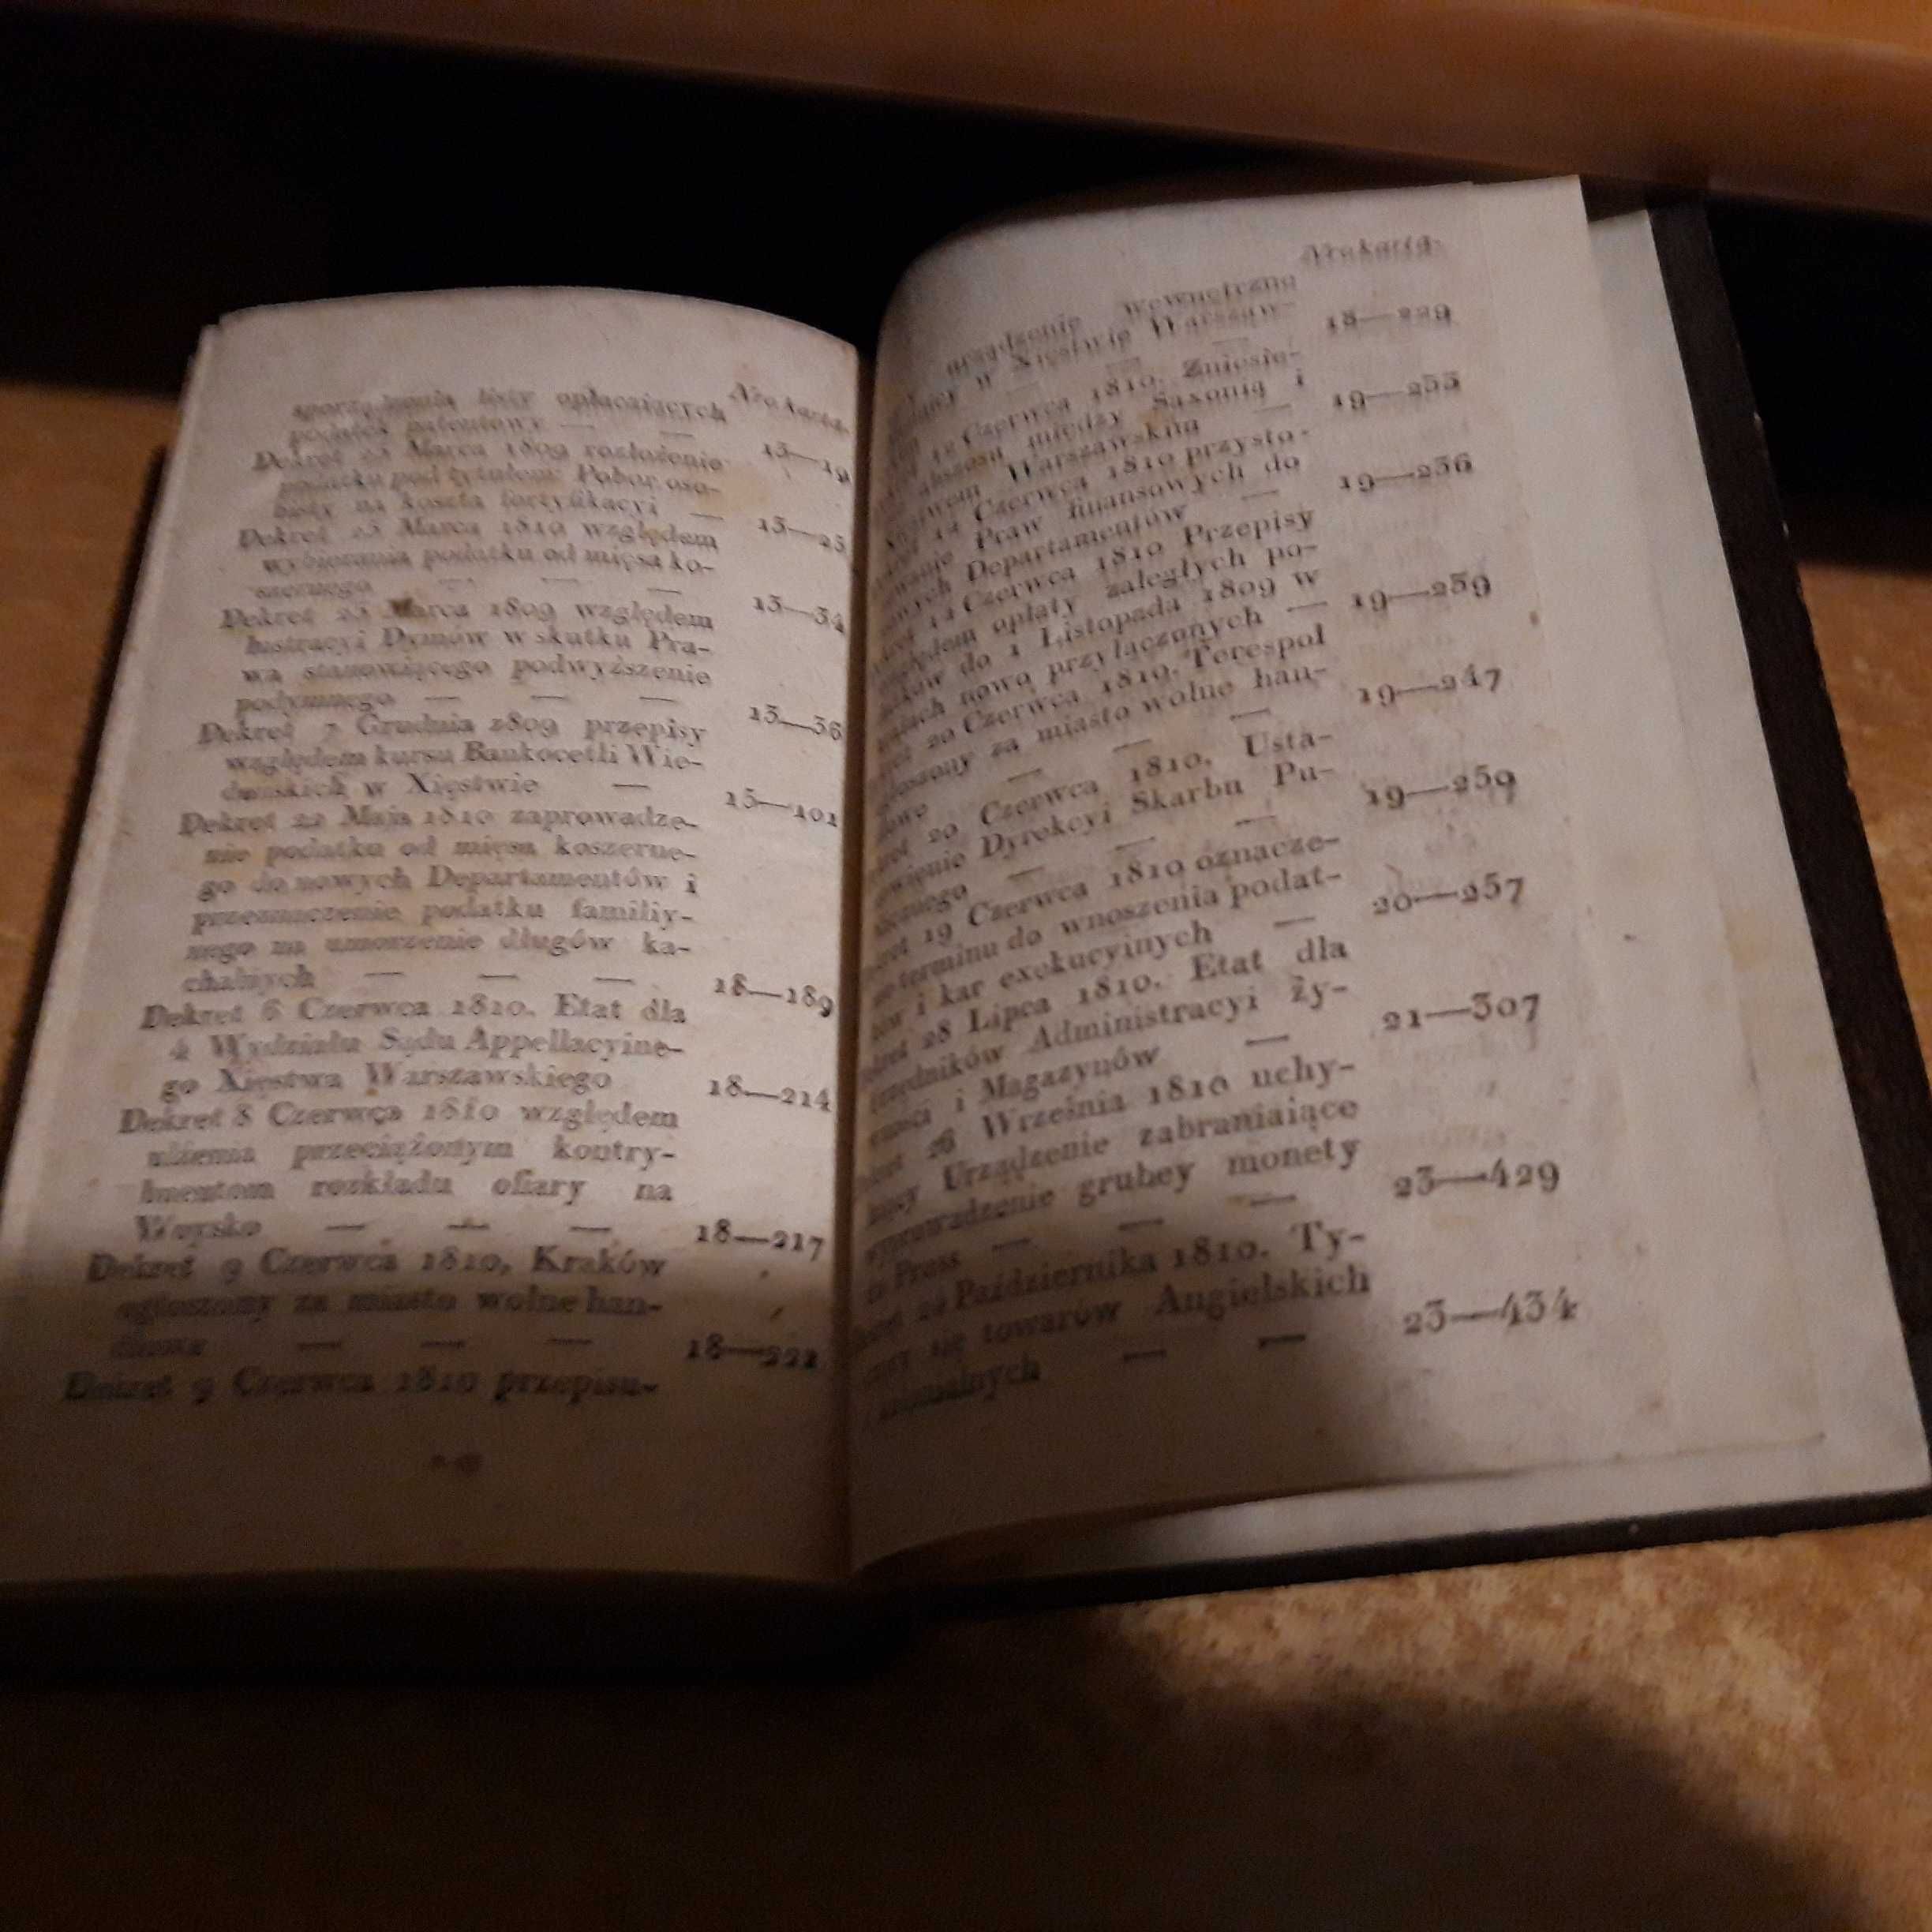 Nro karta.
sporządzenia listy opłacaiących
podatek patentowy — —
13—19
Dekret 23 Marca 1809 rozłożenie
podatku pod tytułem: Pobor oso-
bisty na koszta fortyfikacyi —
13—25
Dekret 23 Marca 1810 względem
wybierania podatku od mięsa ko-
szernego — — —
13—34
Dekret 23 Marca 1809 względem
lustracyi Dymów w skutku Pra-
wa stanowiącego podwyższenie
podymnego — — —
13—36
Dekret 7 Grudnia 1809 przepisy
względem kursu Bankocetli Wie-
deńskich w Xięstwie —
15—101
Dekret 22 Maja 1810 zaprowadze-
nie podatku od mięsa koszerne-
go do nowych Departamentów i
przeznaczenie podatku familiy-
nego na umorzenie długów ka-
chalnych — — —
18—189
Dekret 6 Czerwca 1810. Etat dla
4 Wydziału Sądu Appellacyine-
go Xięstwa Warszawskiego
18—214
Dekret 8 Czerwca 1810 względem
ulżenia przeciążonym kontry-
buentom rozkładu ofiary na
Woysko — — —
18—217
Dekret 9 Czerwca 1810, Kraków
ogłoszony za miasto wolne han-
dlowe — — —
18—222
Dekret 9 Czerwca 1810 przepisu-
Nro karta.
urządzenie wewnętrzne
w Xięstwie Warszaw-
18—229
12 Czerwca 1810. Zniesie-
abszosu między Saxonią i
Warszawskim —
19—233
12 Czerwca 1810 przysto-
Praw finansowych do
nowych Departamentów —
19—236
12 Czerwca 1810 Przepisy
względem opłaty zaległych po-
datków do 1 Listopada 1809 w
nowo przyłączonych —
19—239
20 Czerwca 1810. Terespol
ogłoszony za miasto wolne han-
dlowe — — —
19—247
20 Czerwca 1810. Usta-
nowienie Dyrekcyi Skarbu Pu-
blicznego — — —
19—250
19 Czerwca 1810 oznacze-
nie terminu do wnoszenia podat-
ków i kar exekucyinych —
20—257
28 Lipca 1810. Etat dla
Urzędników Administracyi ży-
wności i Magazynów —
21—307
26 Września 1810 uchy-
Urządzenie zabraniaiące
wyprowadzenie grubey monety
do Pruss — — —
23—429
Października 1810. Ty-
czący się towarów Angielskich
— —
23—434